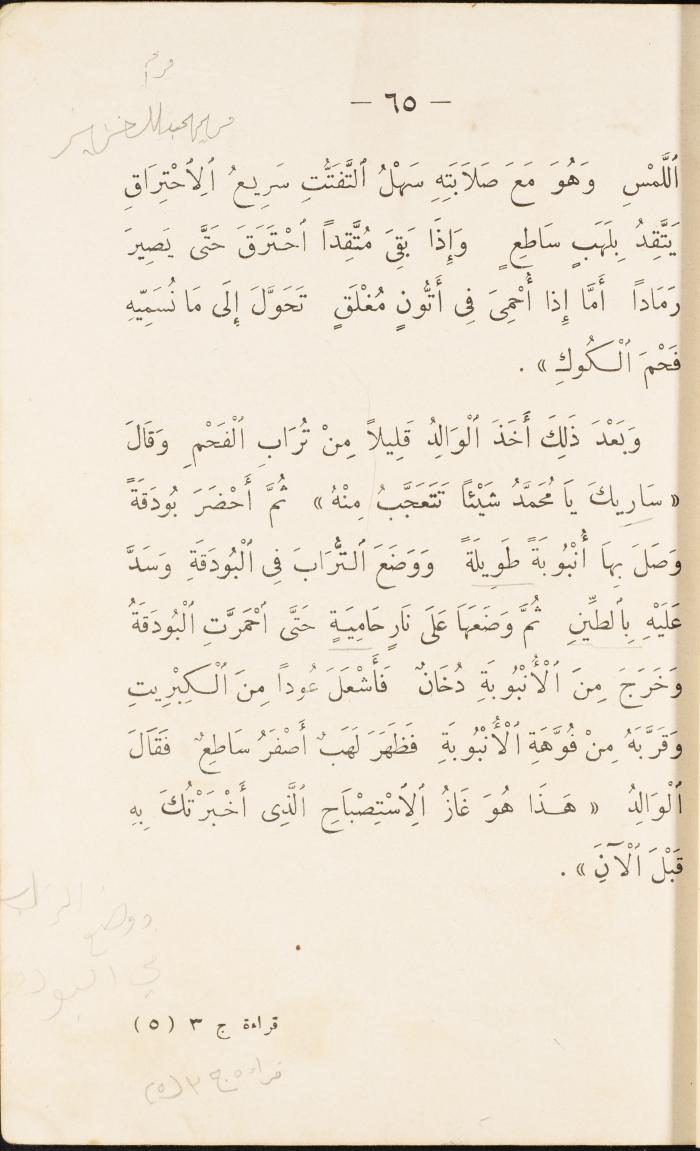 — ٦٥ —
ٱللَّمْسِ وَهُوَ مَعَ صَلَابَتِهِ سَهْلُ ٱلتَّفَتُّتِ سَرِيعُ ٱلِٱحْتِرَاقِ
يَتَّقِدُ بِلَهَبٍ سَاطِعٍ وَإِذَا بَقِىَ مُتَّقِداً ٱحْتَرَقَ حَتَّى يَصِيرَ
رَمَاداً أَمَّا إِذا أُحْمِىَ فِى أَتُّونٍ مُغْلَقٍ تَحَوَّلَ إِلَى مَا نُسَمِّيهِ
فَحْمَ ٱلْكُوكِ» .
وَبَعْدَ ذَلِكَ أَخَذَ ٱلْوَالِدُ قَلِيلاً مِنْ تُرَابِ ٱلْفَحْمِ وَقَالَ
«سَارِيكَ يَا مُحَمَّدُ شَيْئاً تَتَعَجَّبُ مِنْهُ» ثُمَّ أَحْضَرَ بُودَقَةً
وَصَلَ بِهَا أُنْبُوبَةً طَوِيلَةً وَوَضَعَ ٱلتُّرَابَ فِى ٱلْبُودَقَةِ وَسَدَّ
عَلَيْهِ بِٱلطِّينِ ثُمَّ وَضَعَهَا عَلَى نَارٍ حَامِيَةٍ حَتَّى ٱحْمَرَّتِ ٱلْبُودَقَةُ
وَخَرَجَ مِنَ ٱلْأُنْبُوبَةِ دُخَانٌ فَأَشْعَلَ عُوداً مِنَ ٱلْكِبْرِيتِ
وَقَرَّبَهُ مِنْ فُوَّهَةِ ٱلْأُنْبُوبَةِ فَظَهَرَ لَهَبٌ أَصْفَرُ سَاطِعٌ فَقَالَ
ٱلْوَالِدُ «هَذَا هُوَ غَازُ ٱلِٱسْتِصْبَاحِ ٱلَّذِى أَخْبَرْتُكَ بِهِ
قَبْلَ ٱلْآنَ» .
ووضع
في البودقة
قراءة ج ٣ (٥)
قراءة ج ٣ (٥)